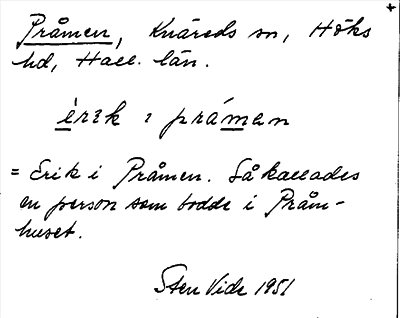 Pråmen, Knäreds sn, Höks
hd, Hall. län.
èrɩk ɩ prámen
= Erik i Pråmen. Så kallades
en person som bodde i Pråm-
huset.
Sten Vide 1951